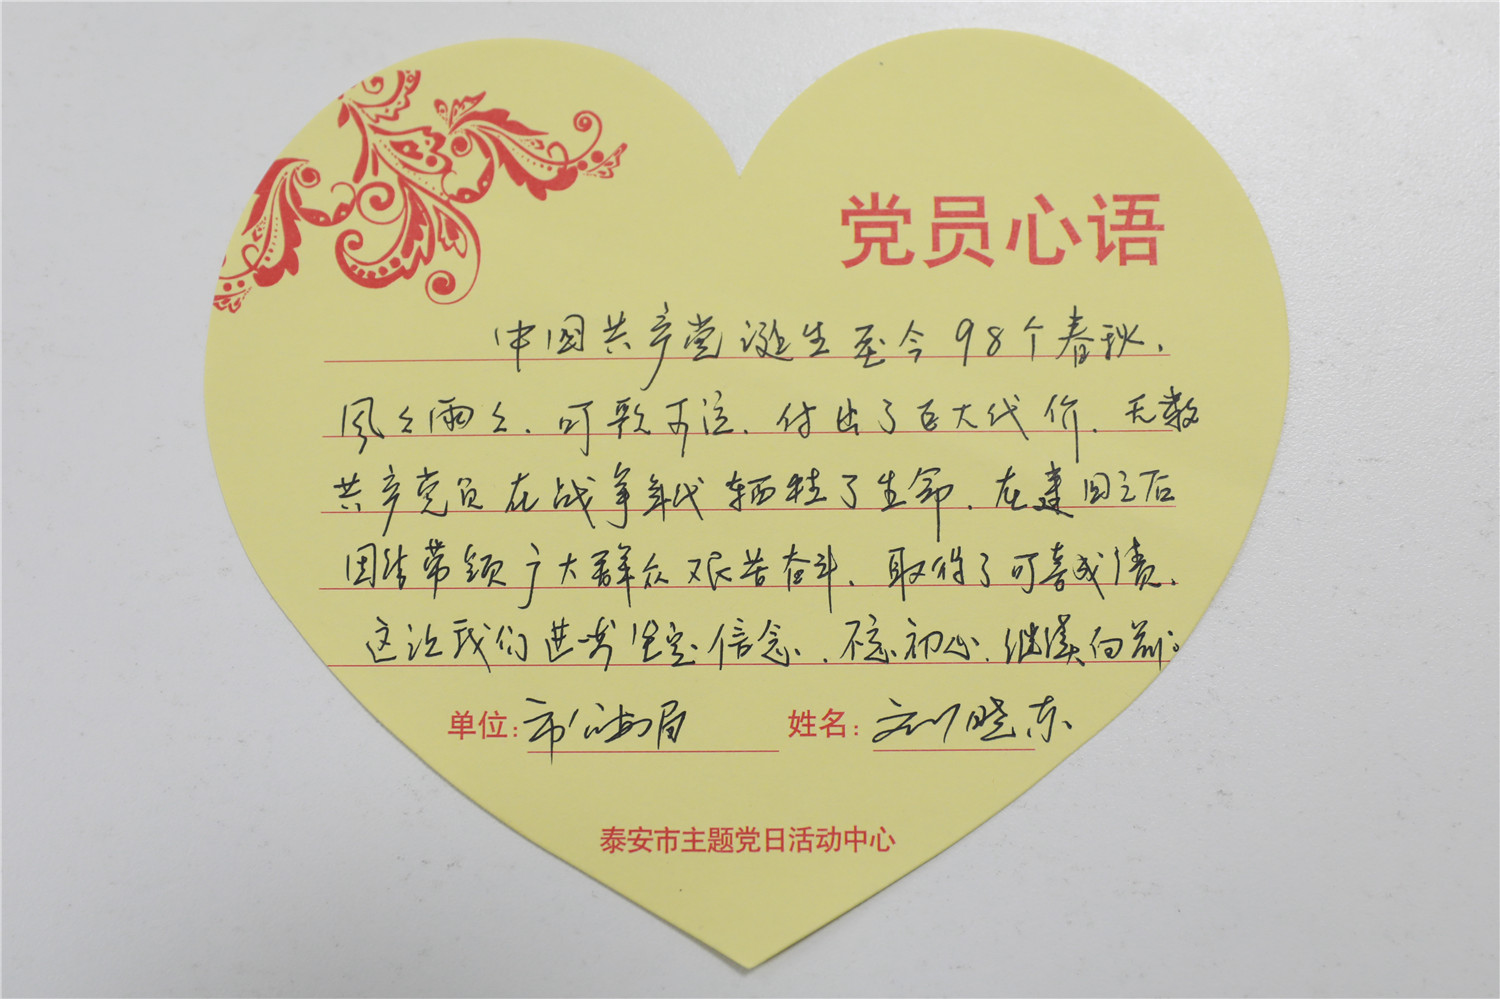 党员心语
中国共产党诞生至今98个春秋,
风风雨雨、可歌可泣、付出了巨大代价、无数
共产党员在战争年代牺牲了生命、在建国之后
团结带领广大群众艰苦奋斗、取得了可喜成绩、
这让我们进步坚定信念、不忘初心、继续向前。
单位:市公安局 姓名:刘晓东
泰安市主题党日活动中心